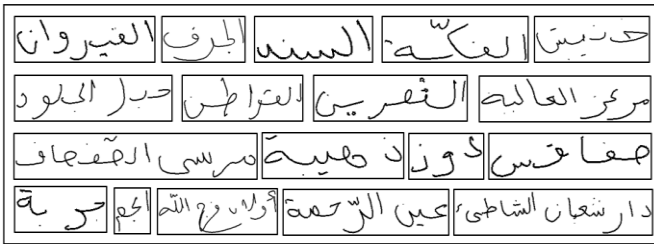 الفكّة السند الجرف القيروان
مركز العالية القصرين القراطن جبل الجلود
صفاقس دوز ذهيبة مرسى الصفصاف
دار شعبان الشاطئ عين الرّحمة أولاد فرج الله الجم جربة